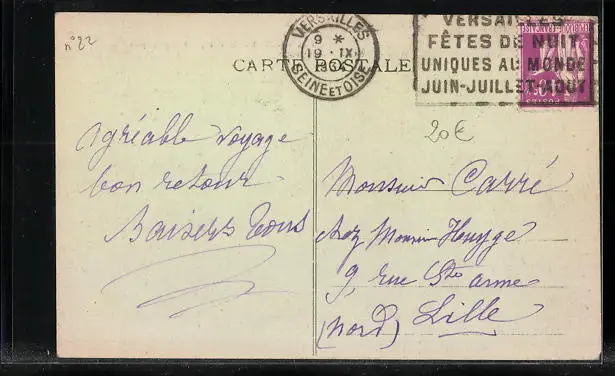 n° 22
VERSAILLES
9 *
19 - IX
1934
SEINE ET OISE
VERSAILLES
FÊTES DE NUIT
UNIQUES AU MONDE
JUIN-JUILLET-AOUT
CARTE POSTALE
20€
agréable voyage
bon retour
Baisers Tous
Monsieur Carré
chez Monsieur Huyge
9, rue Ste anne
(Nord) Lille